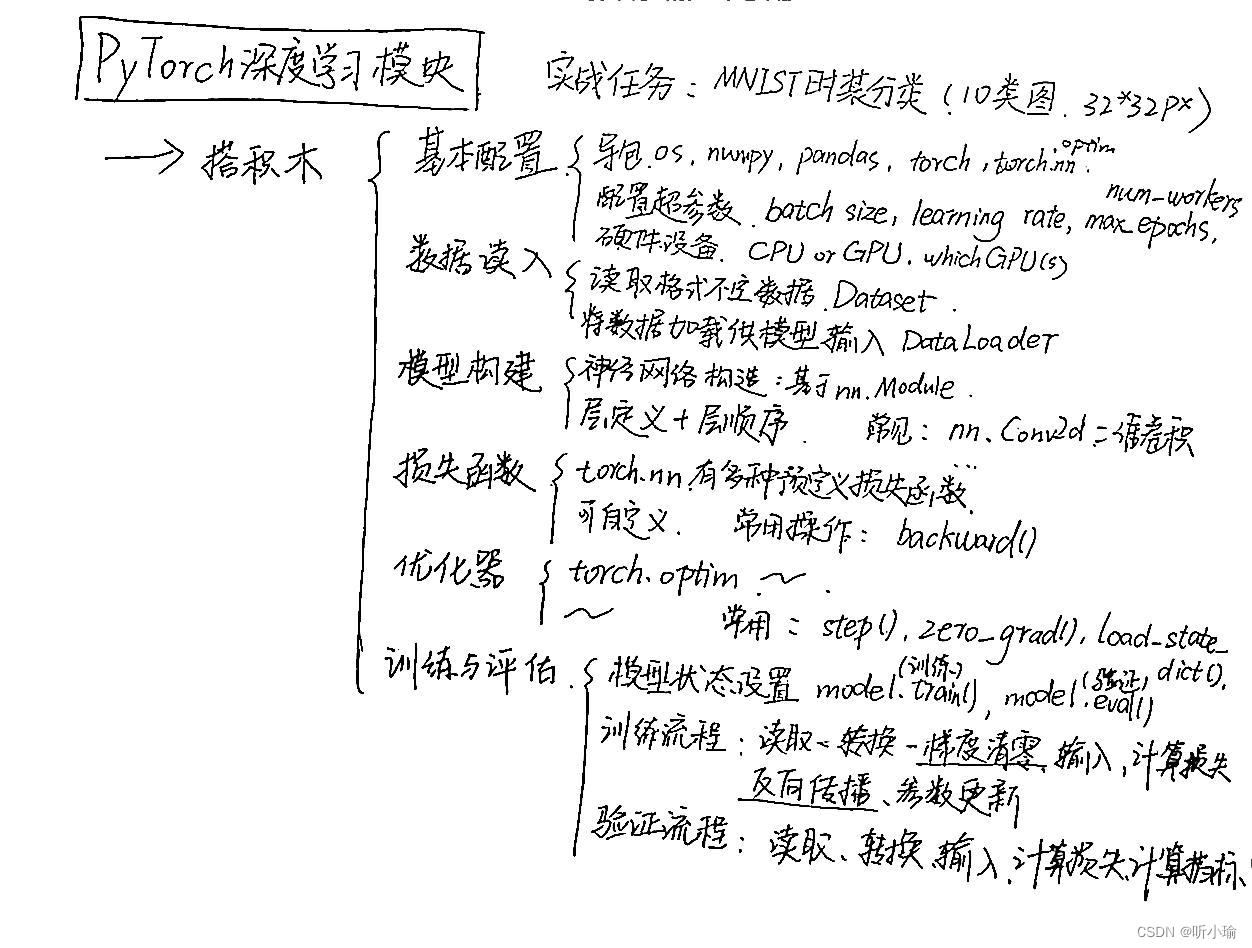 PyTorch深度学习模块
实战任务：MNIST时装分类（10类图．32*32px）
→ 搭积木
基本配置
导包．os, numpy, pandas, torch, torch.nn. optim
配置超参数．batch size, learning rate, max_epochs, num-workers
硬件设备．CPU or GPU. which GPU(s)
数据读入
读取格式不定数据．Dataset．
将数据加载供模型输入 DataLoader
模型构建
神经网络构造：基于nn.Module．
层定义＋层顺序． 常见：nn.Conv2d：卷积
...
损失函数
torch.nn.有多种预定义损失函数．
可自定义． 常用操作：backward()
优化器
torch.optim．～．
～
常用：step(), zero_grad(), load_state_dict().
训练与评估
模型状态设置 model.train()(训练), model.eval()(验证)
训练流程：读取-转换-梯度清零、输入，计算损失
反向传播、参数更新
验证流程：读取、转换、输入．计算损失、计算指标、
CSDN @听小瑜